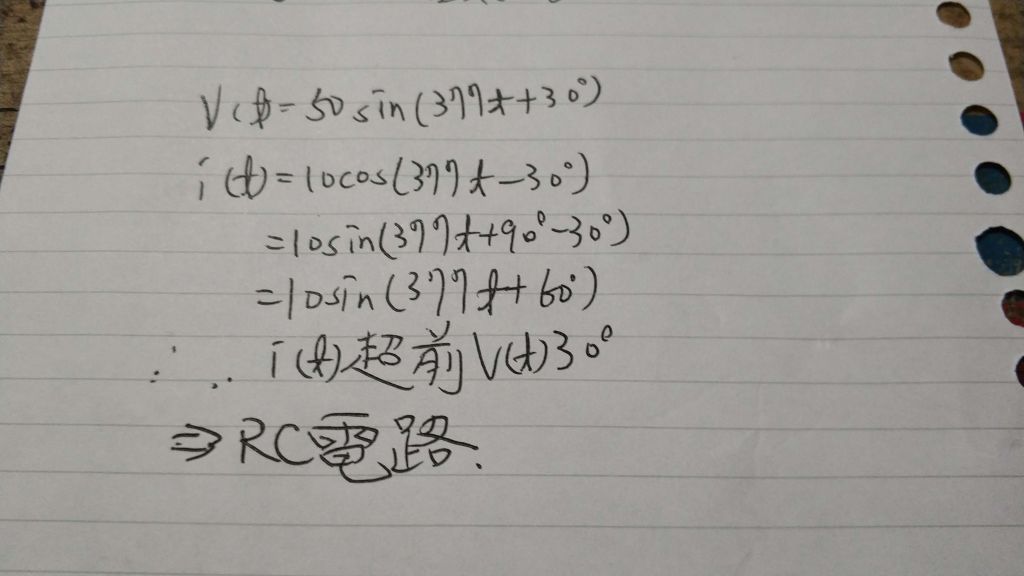 V(t)=50sin(377t+30°)
i(t)=10cos(377t-30°)
=10sin(377t+90°-30°)
=10sin(377t+60°)
∴ i(t)超前V(t)30°
⇒RC電路.